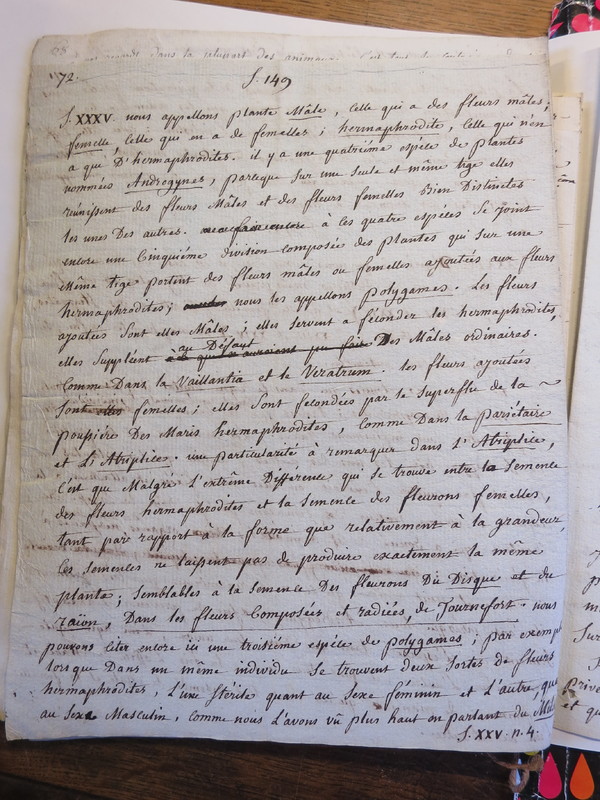 72.
§. 149
§. XXXV. nous appellons plante Mâle, celle qui a des fleurs mâles;
femelle, celle qui en a de femelles; hermaphrodite, celle qui n'en
a que D'hermaphrodites. il y a une quatriéme espéce de plantes
nommées Androgynes, parceque sur une seule et même tige elles
réunissent des fleurs Mâles et des fleurs femelles Bien Distinctes
les unes Des autres. à ces quatre espéces Se joint
encore une Cinquiéme division composée des plantes qui sur une
même tige portent des fleurs mâles ou femelles ajoutées aux fleurs
hermaphrodites; nous les appellons polygames. Les fleurs
ajoutées Sont elles Mâles; elles servent a féconder les hermaphrodites,
au Défaut
elles Suppléent Des Mâles ordinaires.
Comme Dans la Vaillantia et le Veratrum. les fleurs ajoutées
Sont elles femelles; elles Sont fecondées par le Superflu de la ~
poussiére Des Maris hermaphrodites, comme Dans la pariétaire
et L'Atriplice. une particularité à remarquer dans l'Atriplice,
C'est que Malgré l'extrême Différence qui se trouve entre la Semence
des fleurs hermaphrodites et la semence des fleurons femelles,
tant par rapport à la forme que relativement à la grandeur,
Ces semences ne laissent pas de produire exactement la même
plante; Semblables à la Semence Des fleurons Du Disque et du
raïon, Dans les fleurs Composées et radiées, de Tournefort. nous
pouvons citer encore ici une troisiéme espéce de polygames; par exemp
lorsque Dans un même individu Se trouvent deux Sortes de fleurs
hermaphrodites, L'une Stérile quant au Sexe féminin et L'autre, qua
au Sexe Masculin, comme nous l'avons vû plus haut en parlant du
§. XXV. n. 4.